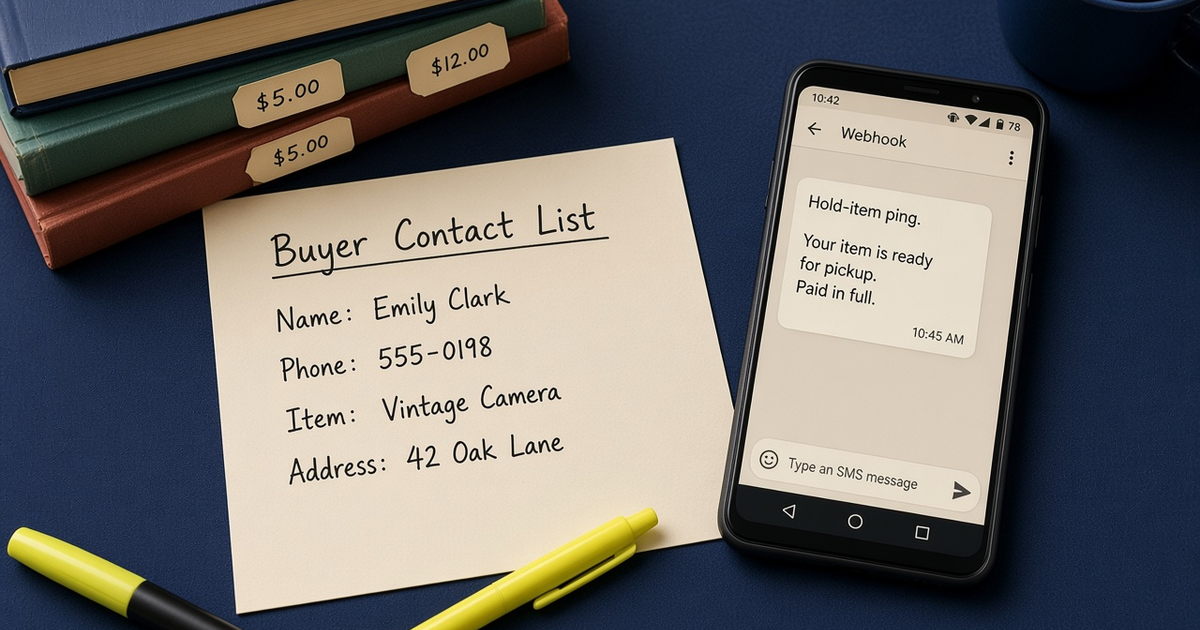 $12.00
$5.00
$5.00
Buyer Contact List
Name: Emily Clark
Phone: 555-0198
Item: Vintage Camera
Address: 42 Oak Lane
10:42
78
Webhook
Hold-item ping.
Your item is ready
for pickup.
Paid in full.
10:45 AM
Type an SMS message